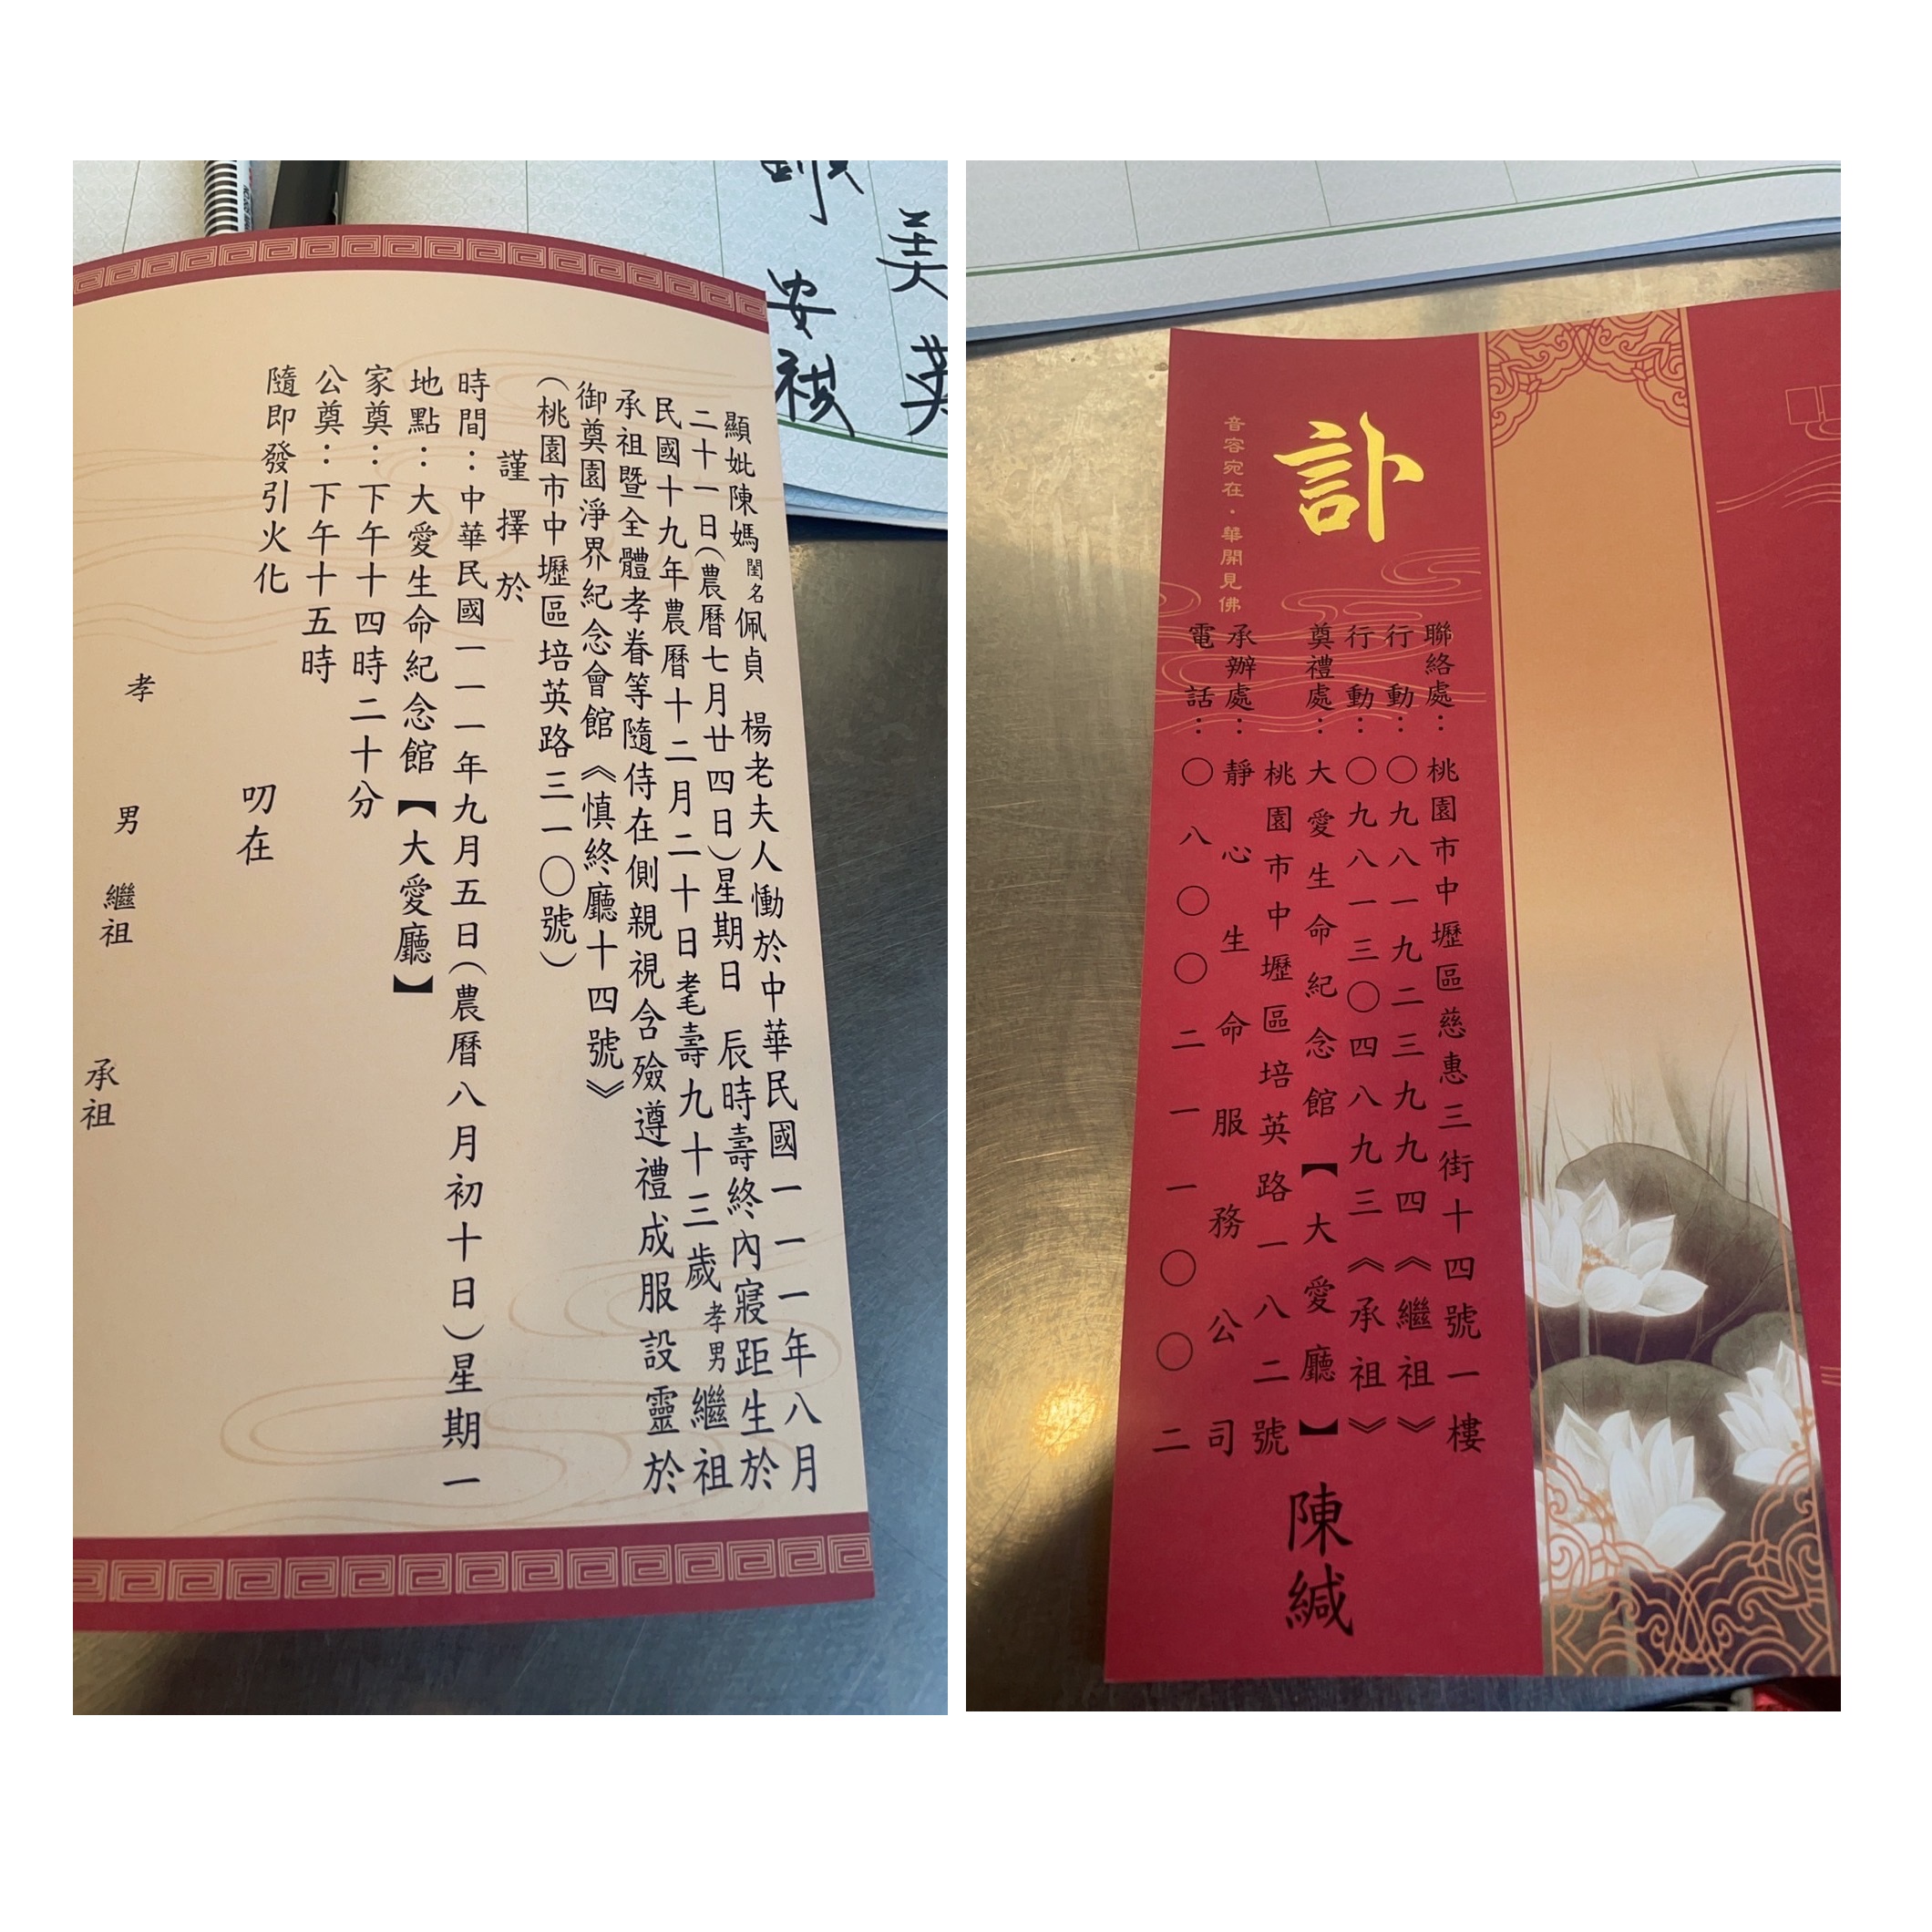 美英
安祺
顯妣陳媽閨名佩貞 楊老夫人慟於中華民國一一一年八月
二十一日(農曆七月廿四日)星期日 辰時壽終內寢距生於
民國十九年農曆十二月二十日耄壽九十三歲孝男繼祖
承祖暨全體孝眷等隨侍在側親視含殮遵禮成服設靈於
御奠園淨界紀念會館《慎終廳十四號》
(桃園市中壢區培英路三一〇號)
謹擇於
時間:中華民國一一一年九月五日(農曆八月初十日)星期一
地點:大愛生命紀念館【大愛廳】
家奠:下午十四時二十分
公奠:下午十五時
隨即發引火化
叨在
孝
男 繼祖
承祖
訃
音容宛在·華開見佛
聯絡處:桃園市中壢區慈惠三街十四號一樓
行動:〇九八一九二三九九四《繼祖》
行動:〇九八一三〇四八九三《承祖》
奠禮處:大愛生命紀念館【大愛廳】
桃園市中壢區培英路一八二號
承辦處:靜心生命服務公司
電話:〇八〇〇二一一〇〇二
陳緘